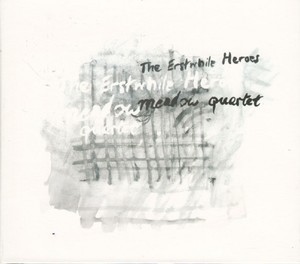 The Erstwhile Heroes
The Erstwhile Her
meadow meadow quartet
quartet